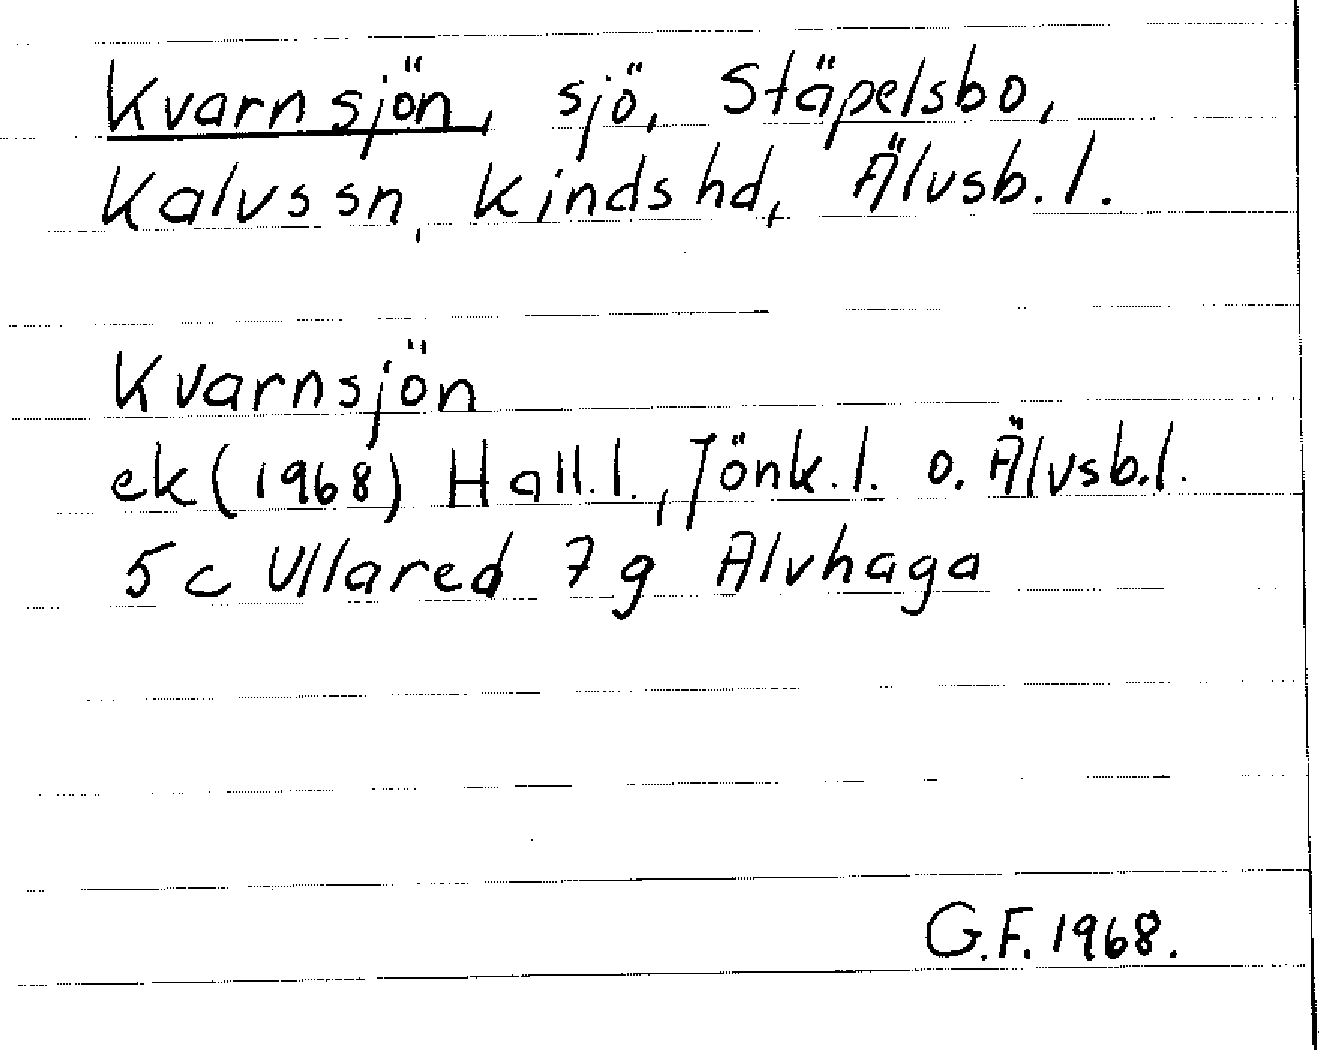 Kvarnsjön, sjö, Stäpelsbo,
Kalvs sn, Kinds hd, Älvsb. l.
Kvarnsjön
ek (1968) Hall. l., Jönk. l. o. Älvsb. l.
5 c Ullared 7 g Alvhaga
G.F. 1968.